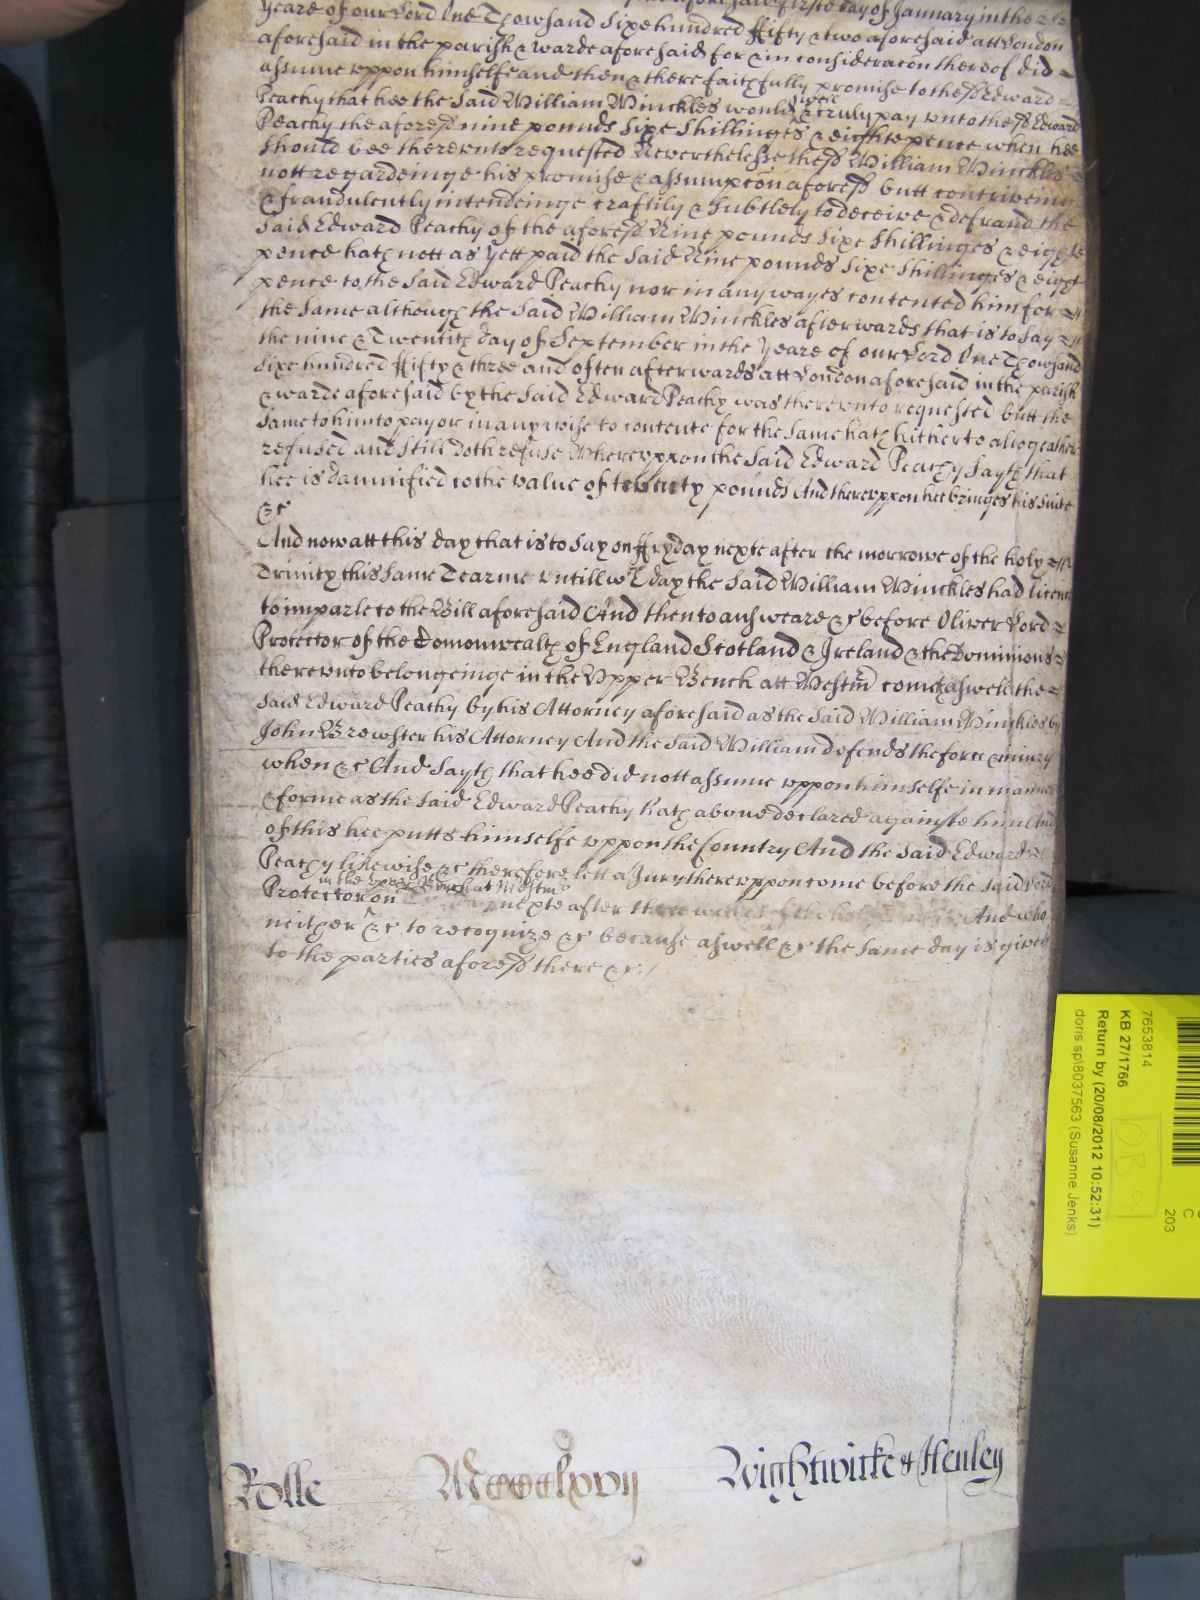 yeare of our Lord One Thowsand Sixe hundred ffifty & two aforesaid att London
aforesaid in the parish & warde aforesaid for & in consideracõn thereof did
assume uppon himselfe and then & there faithfully promise to the sd Edward
Peachy that hee the said William Winckles would well & truly pay unto the sd Edward
Peachy the aforesd nine pounds sixe shillinges & eighte pence when hee
should bee thereunto requested Neverthelesse the sd William Winckles
nott regardeinge his promise & assumpcõn aforesd butt contriveing
& fraudulently intendeinge craftily & subtlely to deceive & defraud the
said Edward Peachy of the aforesd Nine pounds sixe shillinges & eighte
pence hath nott as yett paid the said Nine pounds sixe shillinges & eight
pence to the said Edward Peachy nor in any wayes contented him for
the same although the said William Winckles afterwards that is to say
the nine & Twentith day of September in the yeare of our Lord One Thowsand
sixe hundred ffifty & three and often afterwards att London aforesaid in the parish
& warde aforesaid by the said Edward Peachy was thereunto requested butt the
same to him to pay or in any wise to contente for the same hath hitherto altogeather
refused and still doth refuse Whereuppon the said Edward Peachy sayth that
hee is damnified to the value of twenty pounds And thereuppon hee bringes his suite
&c
And now att this day that is to say on ffryday nexte after the morrowe of the holy
Trinity this same Tearme untill wch day the said William Winckles had licence
to imparle to the Bill aforesaid And then to answeare &c before Oliver Lord
Protector of the Comonwealth of England Scotland & Ireland & the Dominions
thereunto belongeinge in the Upper Bench att Westmr cometh aswell the
said Edward Peachy by his Attorney aforesaid as the said William Winckles by
John Brewster his Attorney And the said William defends the force & iniury
when &c And sayth that hee did nott assume uppon himselfe in manner
& forme as the said Edward Peachy hath above declared againste him And
of this hee putts himselfe uppon the Country And the said Edward
Peachy likewise &c therefore lett a Jury thereuppon come before the said Lord
in the Upper Bench at Westmr
Protector on nexte after three weekes of the holy And who
neither &c to recognize &c because aswell &c the same day is given
to the parties aforesd there &c
Rolle Mccclxvij Wightwicke & Henley
7653814
KB 27/1766
Return by (20/08/2012 10:52:31)
doris sp\8037563 (Susanne Jenks)
C
203